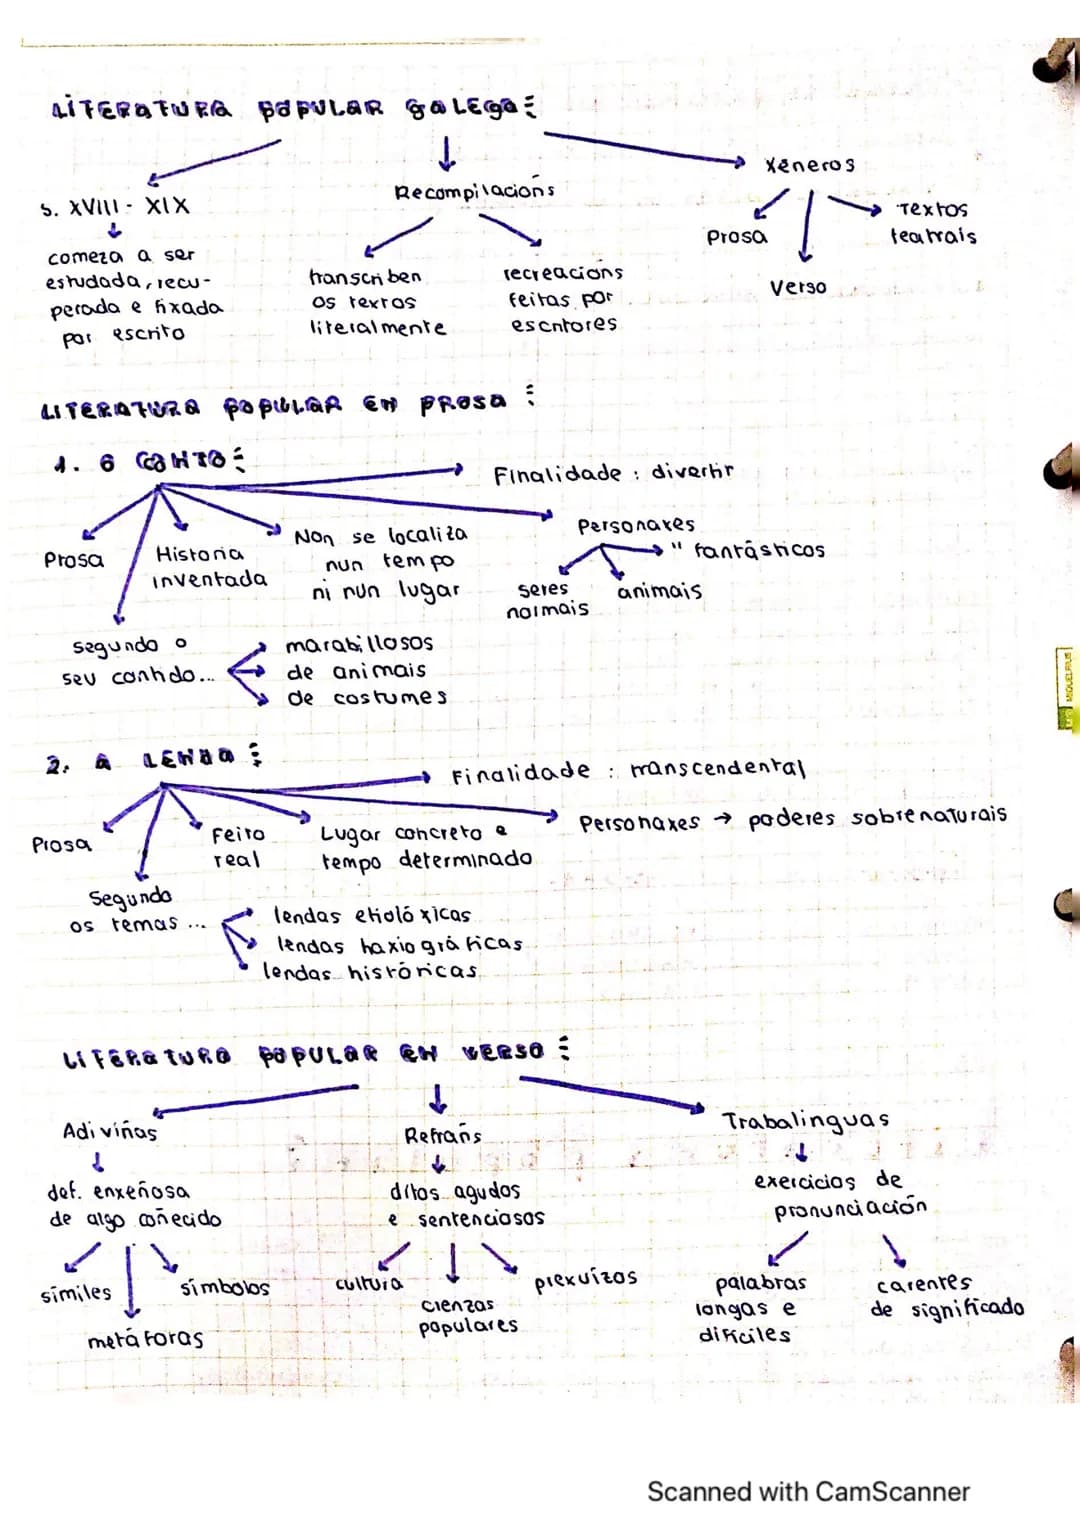 LITERATURA POPULAR GALEGA:
Xéneros
Recompilacións
s. XVIII - XIX
Textos
teatrais
Prosa
Verso
comeza a ser
estudada, recu-
perada e fixada
por escrito
transcriben
os textos
literalmente
recreacións
feitas por
escritores
LITERATURA POPULAR EN PROSA:
1. O CONTO:
Finalidade : divertir
Prosa
Historia
inventada
Non se localiza
nun tempo
ni nun lugar
Personaxes
" fantásticos
seres
normais
animais
segundo o
seu contido...
marabillosos
de animais
de costumes
2. A LENDA:
Finalidade : transcendental
Prosa
Feito
real
Lugar concreto e
tempo determinado
Personaxes → poderes sobrenaturais
Segundo
os temas ...
lendas etiolóxicas
lendas haxiográficas
lendas históricas
LITERATURA POPULAR EN VERSO:
Adiviñas
Refráns
Trabalinguas
def. enxeñosa
de algo coñecido
ditos agudos
e sentenciosos
exercicios de
pronunciación
símiles
símbolos
metáforas
cultura
cienzas
populares
prexuízos
palabras
longas e
difíciles
carentes
de significado
MIQUELRIUS
Scanned with CamScanner